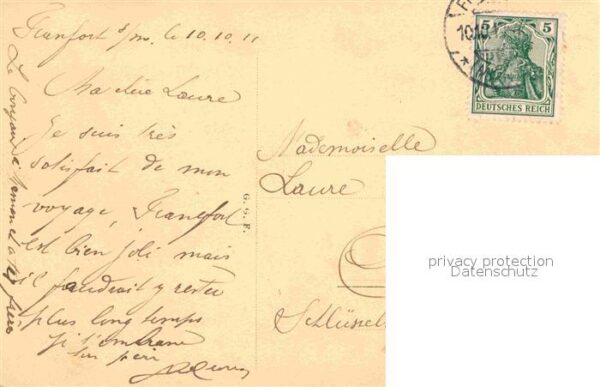 Francfort s/m. le 10.10.11
Ma chère Laure
Je suis très
satisfait de mon
voyage, Francfort
est bien joli mais
il faudrait y rester
plus long temps
Je t'embrasse
ton père
Le bonjour à Maman et à tes frères
G. G. F.
Mademoiselle
Laure
Schlüssel
5 5
DEUTSCHES REICH
10.10
privacy protection
Datenschutz